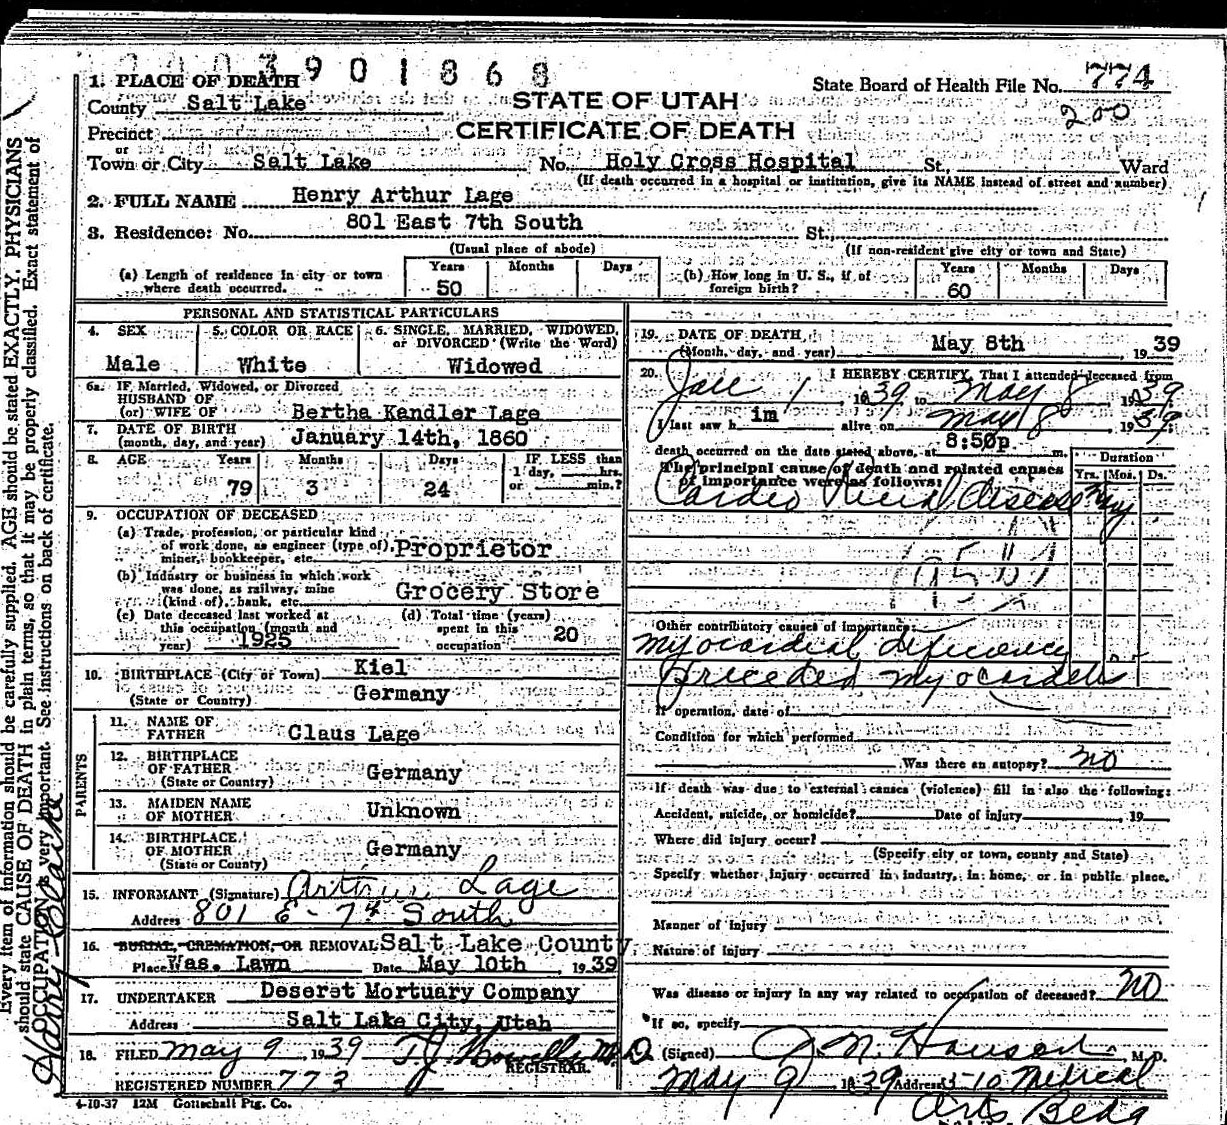 3901868
1. PLACE OF DEATH
State Board of Health File No. 774
County Salt Lake
STATE OF UTAH
200
Precinct
CERTIFICATE OF DEATH
or
Town or City Salt Lake No. Holy Cross Hospital St., Ward
(If death occurred in a hospital or institution, give its NAME instead of street and number)
2. FULL NAME Henry Arthur Lage
3. Residence: No. 801 East 7th South St.,
(Usual place of abode) (If non-resident give city or town and State)
(a) Length of residence in city or town where death occurred. Years 50 Months Days
(b) How long in U. S., if of foreign birth? Years 60 Months Days
PERSONAL AND STATISTICAL PARTICULARS
4. SEX Male
5. COLOR OR RACE White
6. SINGLE, MARRIED, WIDOWED, or DIVORCED (Write the Word) Widowed
6a. IF Married, Widowed, or Divorced
HUSBAND OF
(or) WIFE OF Bertha Kandler Lage
7. DATE OF BIRTH
(month, day, and year) January 14th, 1860
8. AGE Years Months Days IF LESS than
1 day, hrs.
79 3 24 or min.?
9. OCCUPATION OF DECEASED
(a) Trade, profession, or particular kind
of work done, as engineer (type of), Proprietor
miner, bookkeeper, etc.
(b) Industry or business in which work
was done, as railway, mine Grocery Store
(kind of), bank, etc.
(c) Date deceased last worked at
this occupation (month and
year) 1925
(d) Total time (years)
spent in this 20
occupation
10. BIRTHPLACE (City or Town) Kiel
(State or Country) Germany
PARENTS
11. NAME OF
FATHER Claus Lage
12. BIRTHPLACE
OF FATHER Germany
(State or Country)
13. MAIDEN NAME
OF MOTHER Unknown
14. BIRTHPLACE
OF MOTHER Germany
(State or County)
15. INFORMANT (Signature) Arthur Lage
Address 801 E - 7th South
16. BURIAL, CREMATION, OR REMOVAL Salt Lake County
Place Was. Lawn Date May 10th, 1939
17. UNDERTAKER Deseret Mortuary Company
Address Salt Lake City, Utah
18. FILED May 9, 1939 M.D.
REGISTRAR.
REGISTERED NUMBER 773
4-10-37 12M Gottschall Ptg. Co.
19. DATE OF DEATH
(Month, day, and year) May 8th, 1939
20. I HEREBY CERTIFY, That I attended deceased from
Jan 1, 1939 to May 8 1939
I last saw h im alive on May 8 1939;
death occurred on the date stated above, at 8:50p m.
The principal cause of death and related causes
of importance were as follows:
Duration
Yrs. Mos. Ds.
Cardio Renal Disease
Other contributory causes of importance:
Myocardial deficiency
Preceded Myocarditis
If operation, date of
Condition for which performed
Was there an autopsy? no
If death was due to external causes (violence) fill in also the following:
Accident, suicide, or homicide? Date of injury , 19
Where did injury occur?
(Specify city or town, county and State)
Specify whether injury occurred in industry, in home, or in public place.
Manner of injury
Nature of injury
Was disease or injury in any way related to occupation of deceased? no
If so, specify
(Signed) M. D.
May 9, 1939 Address 510 Medical
Arts Bldg
Every item of information should be carefully supplied. AGE should be stated EXACTLY. PHYSICIANS
should state CAUSE OF DEATH in plain terms, so that it may be properly classified. Exact statement of
OCCUPATION is very important. See instructions on back of certificate.